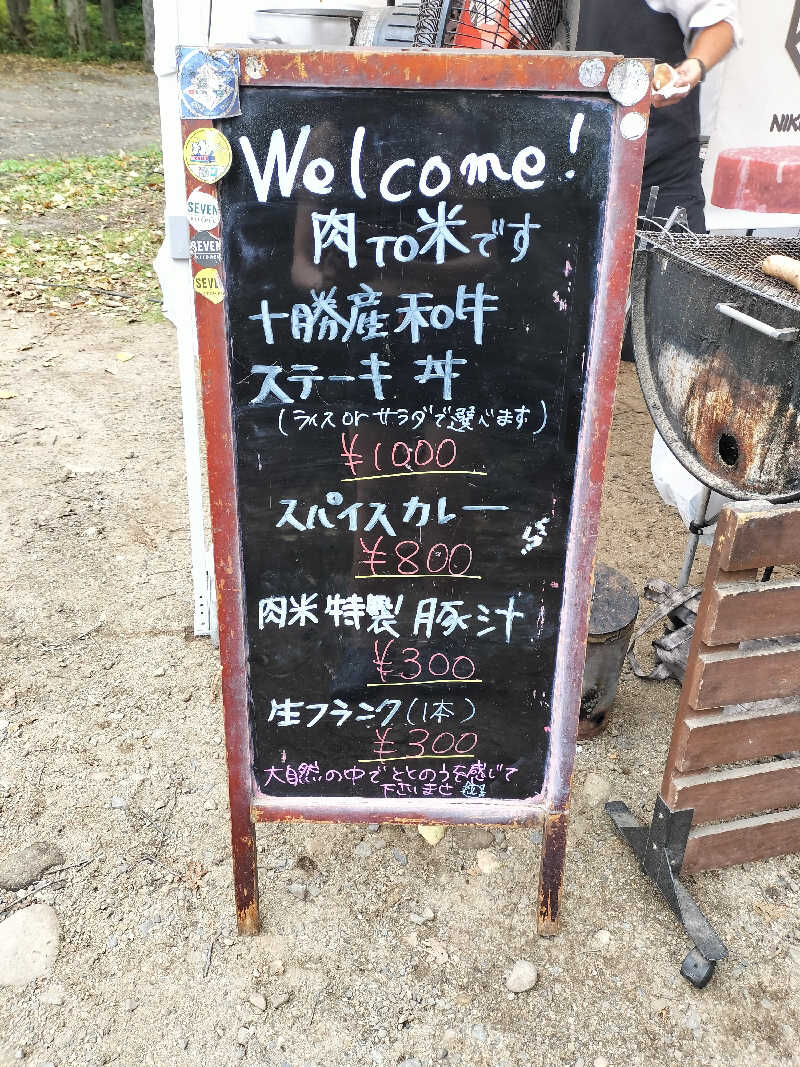 Welcome!
肉TO米です
十勝産和牛
ステーキ丼
(ライス or サラダで選べます)
¥1000
スパイスカレー
¥800
肉米特製豚汁
¥300
生フランク(1本)
¥300
大自然の中でととのうを感じて
下さいませ
SEVEN
SEVEN
SEVE
NIK